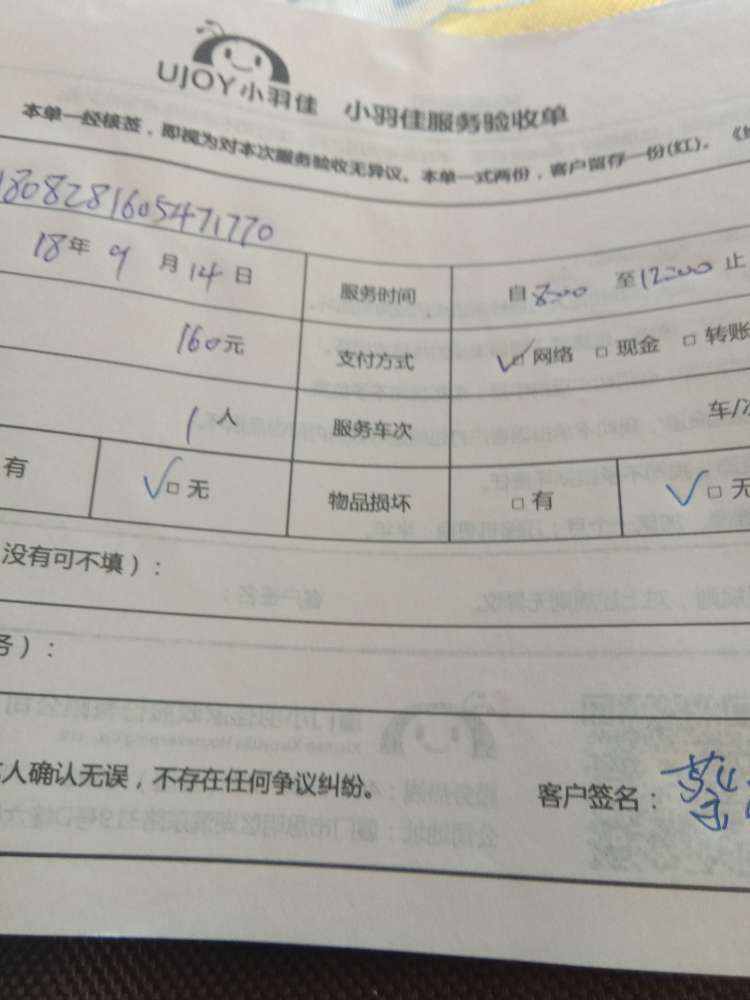 UJOY小羽佳 小羽佳服务验收单
本单一经核签，即视为对本次服务验收无异议。本单一式两份，客户留存一份(红)。
1808281605471770
18年 9 月 14 日 服务时间 自 8:00 至 12:00 止
160元 支付方式 ✓□ 网络 □ 现金 □ 转账
1人 服务车次 车/次
有 ✓□ 无 物品损坏 □ 有 ✓□ 无
没有可不填）：
务）：
人确认无误，不存在任何争议纠纷。 客户签名：蔡